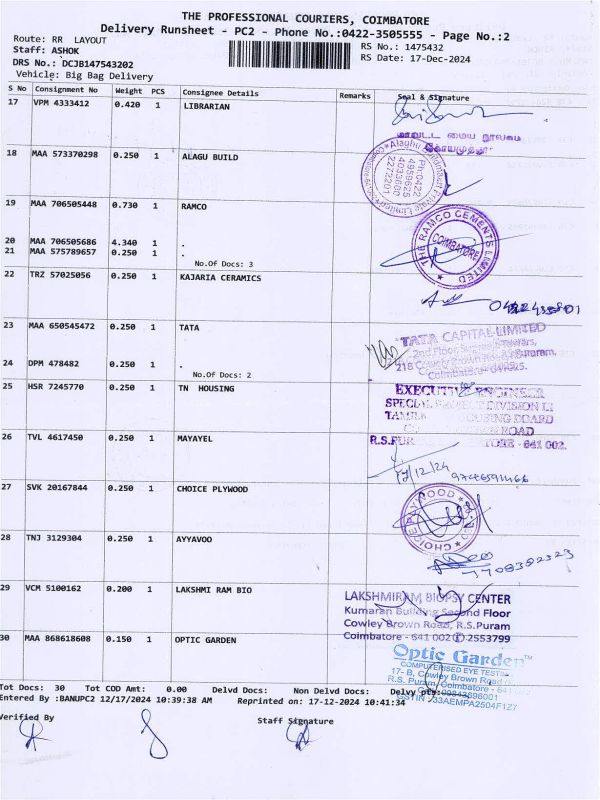 THE PROFESSIONAL COURIERS, COIMBATORE
Delivery Runsheet - PC2 - Phone No.:0422-3505555 - Page No.:2
Route: RR LAYOUT
RS No.: 1475432
Staff: ASHOK
RS Date: 17-Dec-2024
DRS No.: DCJB147543202
Vehicle: Big Bag Delivery
S No Consignment No Weight PCS Consignee Details Remarks Seal & Signature
17 VPM 4333412 0.420 1 LIBRARIAN
மாவட்ட மைய நூலகம்
கோயமுத்தூர்
18 MAA 573370298 0.250 1 ALAGU BUILD
19 MAA 706505448 0.730 1 RAMCO
THE RAMCO CEMENTS LIMITED
COIMBATORE
20 MAA 706505686 4.340 1 .
21 MAA 575789657 0.250 1 .
No.Of Docs: 3
22 TRZ 57025056 0.250 1 KAJARIA CERAMICS
23 MAA 650545472 0.250 1 TATA
TATA CAPITAL LIMITED
2nd Floor,
24 DPM 478482 0.250 1 .
Coimbatore -
No.Of Docs: 2
25 HSR 7245770 0.250 1 TN HOUSING
EXECUTIVE ENGINEER
SPECIAL PROJECT DIVISION
HOUSING BOARD
ROAD
641 002.
26 TVL 4617450 0.250 1 MAYAYEL
17/12/24
27 SVK 20167844 0.250 1 CHOICE PLYWOOD
CHOICE PLYWOOD
28 TNJ 3129304 0.250 1 AYYAVOO
29 VCM 5100162 0.200 1 LAKSHMI RAM BIO
LAKSHMIRAM BIOPSY CENTER
Kumaran Building Second Floor
Cowley Brown Road, R.S.Puram
Coimbatore - 641 002 2553799
30 MAA 868618608 0.150 1 OPTIC GARDEN
Optic Garden
COMPUTERISED EYE TESTING
17- B, Cowley Brown Road
R.S. Puram, Coimbatore - 641
GSTIN : 33AEMPA2504F1Z7
Tot Docs: 30 Tot COD Amt: 0.00 Delvd Docs: Non Delvd Docs: Delvy pts:
Entered By :BANUPC2 12/17/2024 10:39:38 AM Reprinted on: 17-12-2024 10:41:34
Verified By Staff Signature